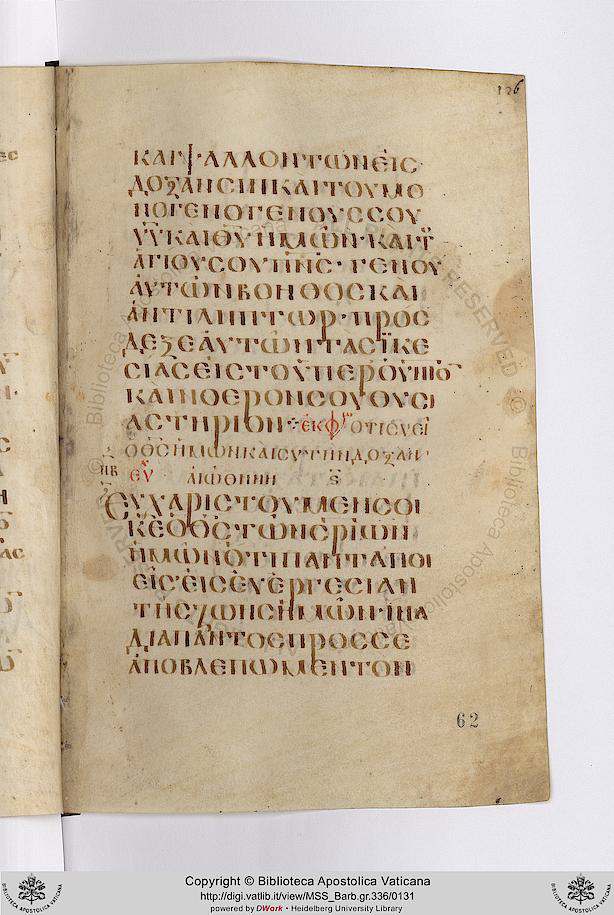 126
ΚΑΙ ΨΑΛΛΟΝΤΩΝ ΕΙΣ
ΔΟΞΑΝ ΣΗΝ ΚΑΙ ΤΟΥ ΜΟ
ΝΟΓΕΝΟΓΕΝΟΥΣ ΣΟΥ
ΥΥ ΚΑΙ ΘΥ ΗΜΩΝ· ΚΑΙ Τ
ΑΓΙΟΥ ΣΟΥ ΠΝΣ· ΓΕΝΟΥ
ΑΥΤΩΝ ΒΟΗΘΟΣ ΚΑΙ
ΑΝΤΙΛΗΠΤΩΡ· ΠΡΟΣ
ΔΕΞΕ ΑΥΤΩΝ ΤΑΣ ΪΚΕ
ΣΙΑΣ ΕΙΣ ΤΟ ΥΠΕΡΟΥΝΙΟ
ΚΑΙ ΝΟΕΡΟΝ ΣΟΥ ΘΥΣΙ
ΑΣΤΗΡΙΟΝ ΕΚΦ ΟΤΙ ΣΥ ΕΙ
Ο ΘΣ ΗΜΩΝ ΚΑΙ ΣΥ ΤΗΝ ΔΟΞΑΝ
ΕΥ
ΕΥΧΑΡΙΣΤΟΥΜΕΝ ΣΟΙ
ΚΕ Ο ΘΣ ΤΩΝ ΣΡΙΩΝ
ΗΜΩΝ Ο ΤΗ ΠΑΝΤΑ ΠΟΙ
ΕΙΣ ΕΙΣ ΕΥΕΡΓΕΣΙΑΝ
ΤΗΣ ΖΩΗΣ ΗΜΩΝ· ΙΝΑ
ΔΙΑΠΑΝΤΟΣ ΠΡΟΣ ΣΕ
ΑΠΟΒΛΕΠΩΜΕΝ ΤΟΝ
62
Copyright © Biblioteca Apostolica Vaticana
http://digi.vatlib.it/view/MSS_Barb.gr.336/0131
powered by DWork - Heidelberg University Library